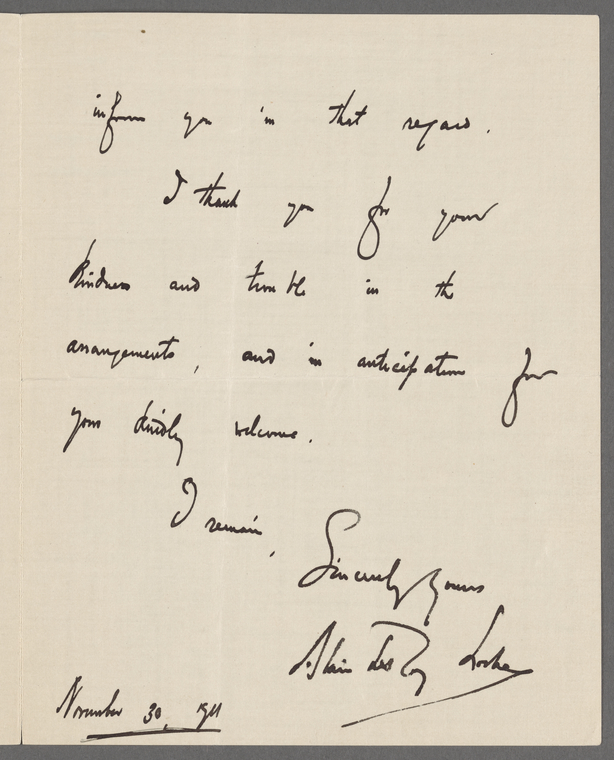 inform you in that regard.
I thank you for your
kindness and trouble in the
arrangements, and in anticipation for
your kindly welcome.
I remain,
Sincerely yours
Alain LeRoy Locke
November 30, 1911